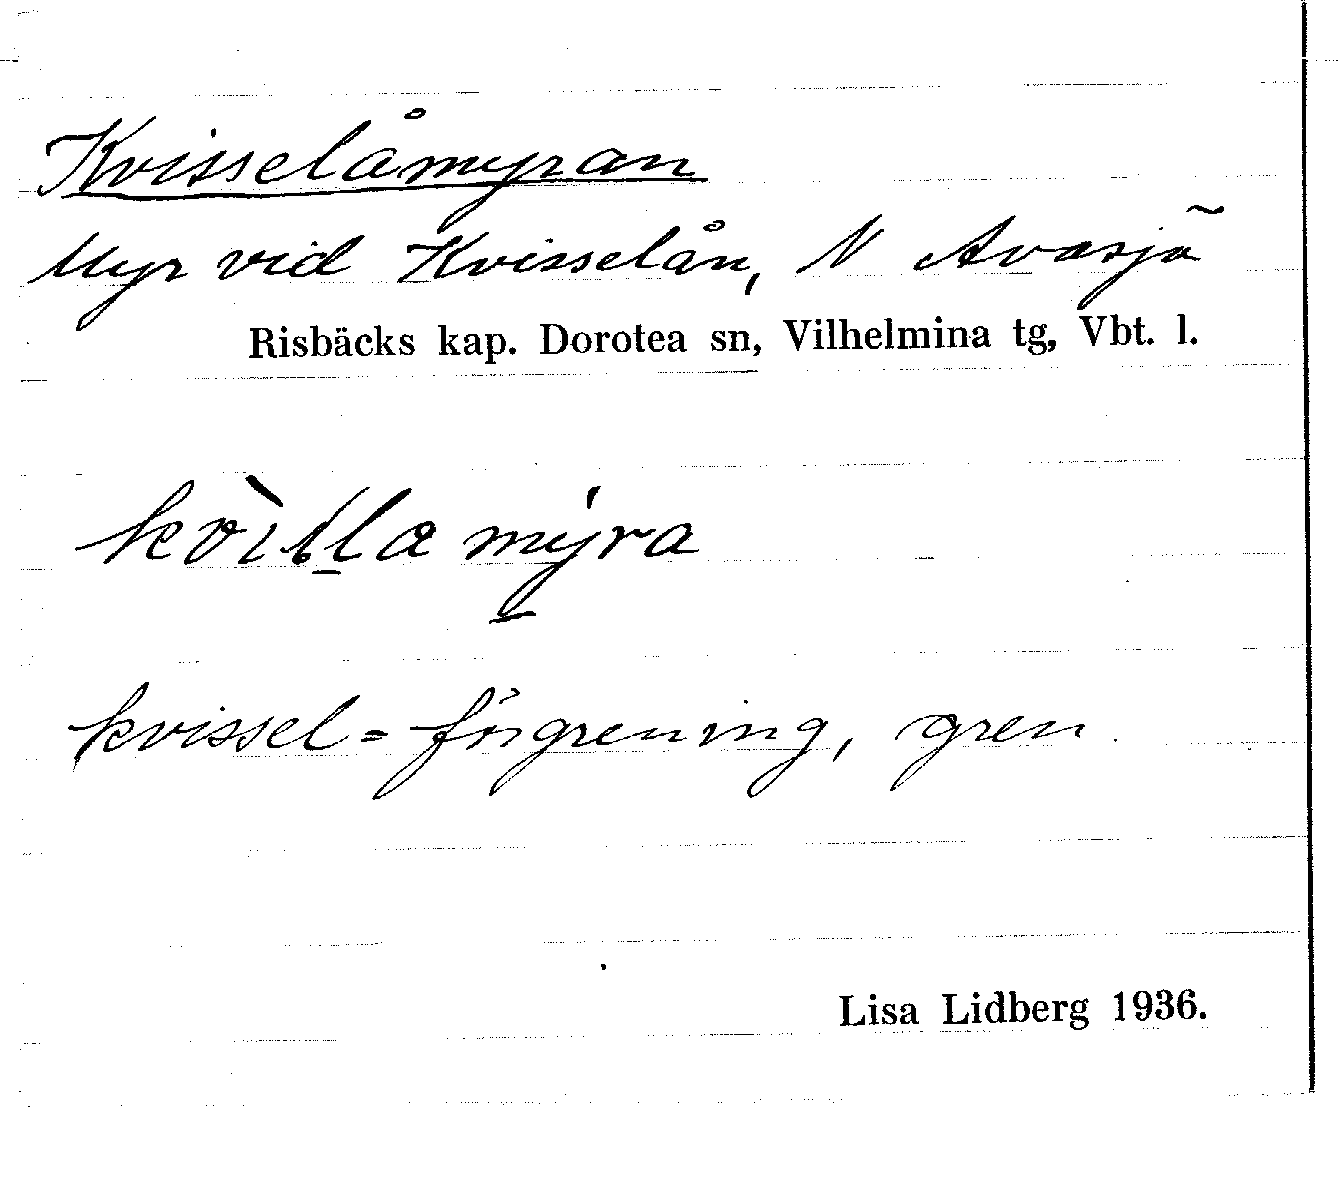 Kvisselåmyran
Myr vid Kvisselån, N Avasjö
Risbäcks kap. Dorotea sn, Vilhelmina tg, Vbt. l.
kvissel = förgrening, gren.
Lisa Lidberg 1936.